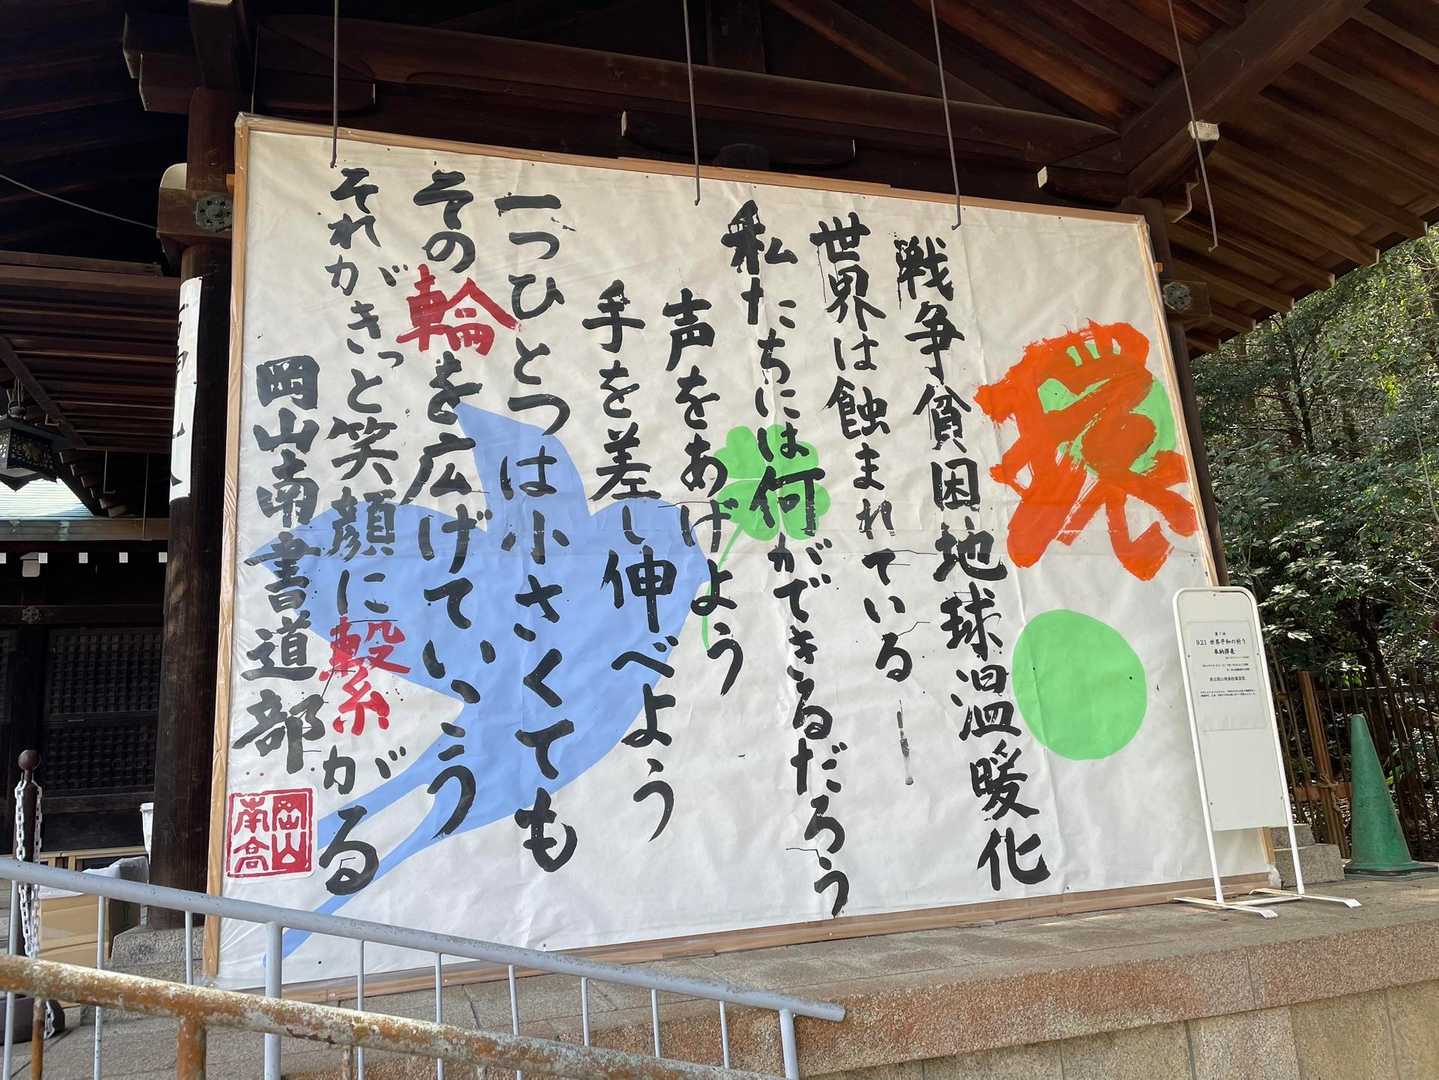 環
戦争貧困地球温暖化
世界は蝕まれている
私たちには何ができるだろう
声をあげよう
手を差し伸べよう
一つひとつは小さくても
その輪を広げていこう
それがきっと笑顔に繋がる
岡山南書道部
岡山
南高
9.21 世界平和の祈り
奉納揮毫